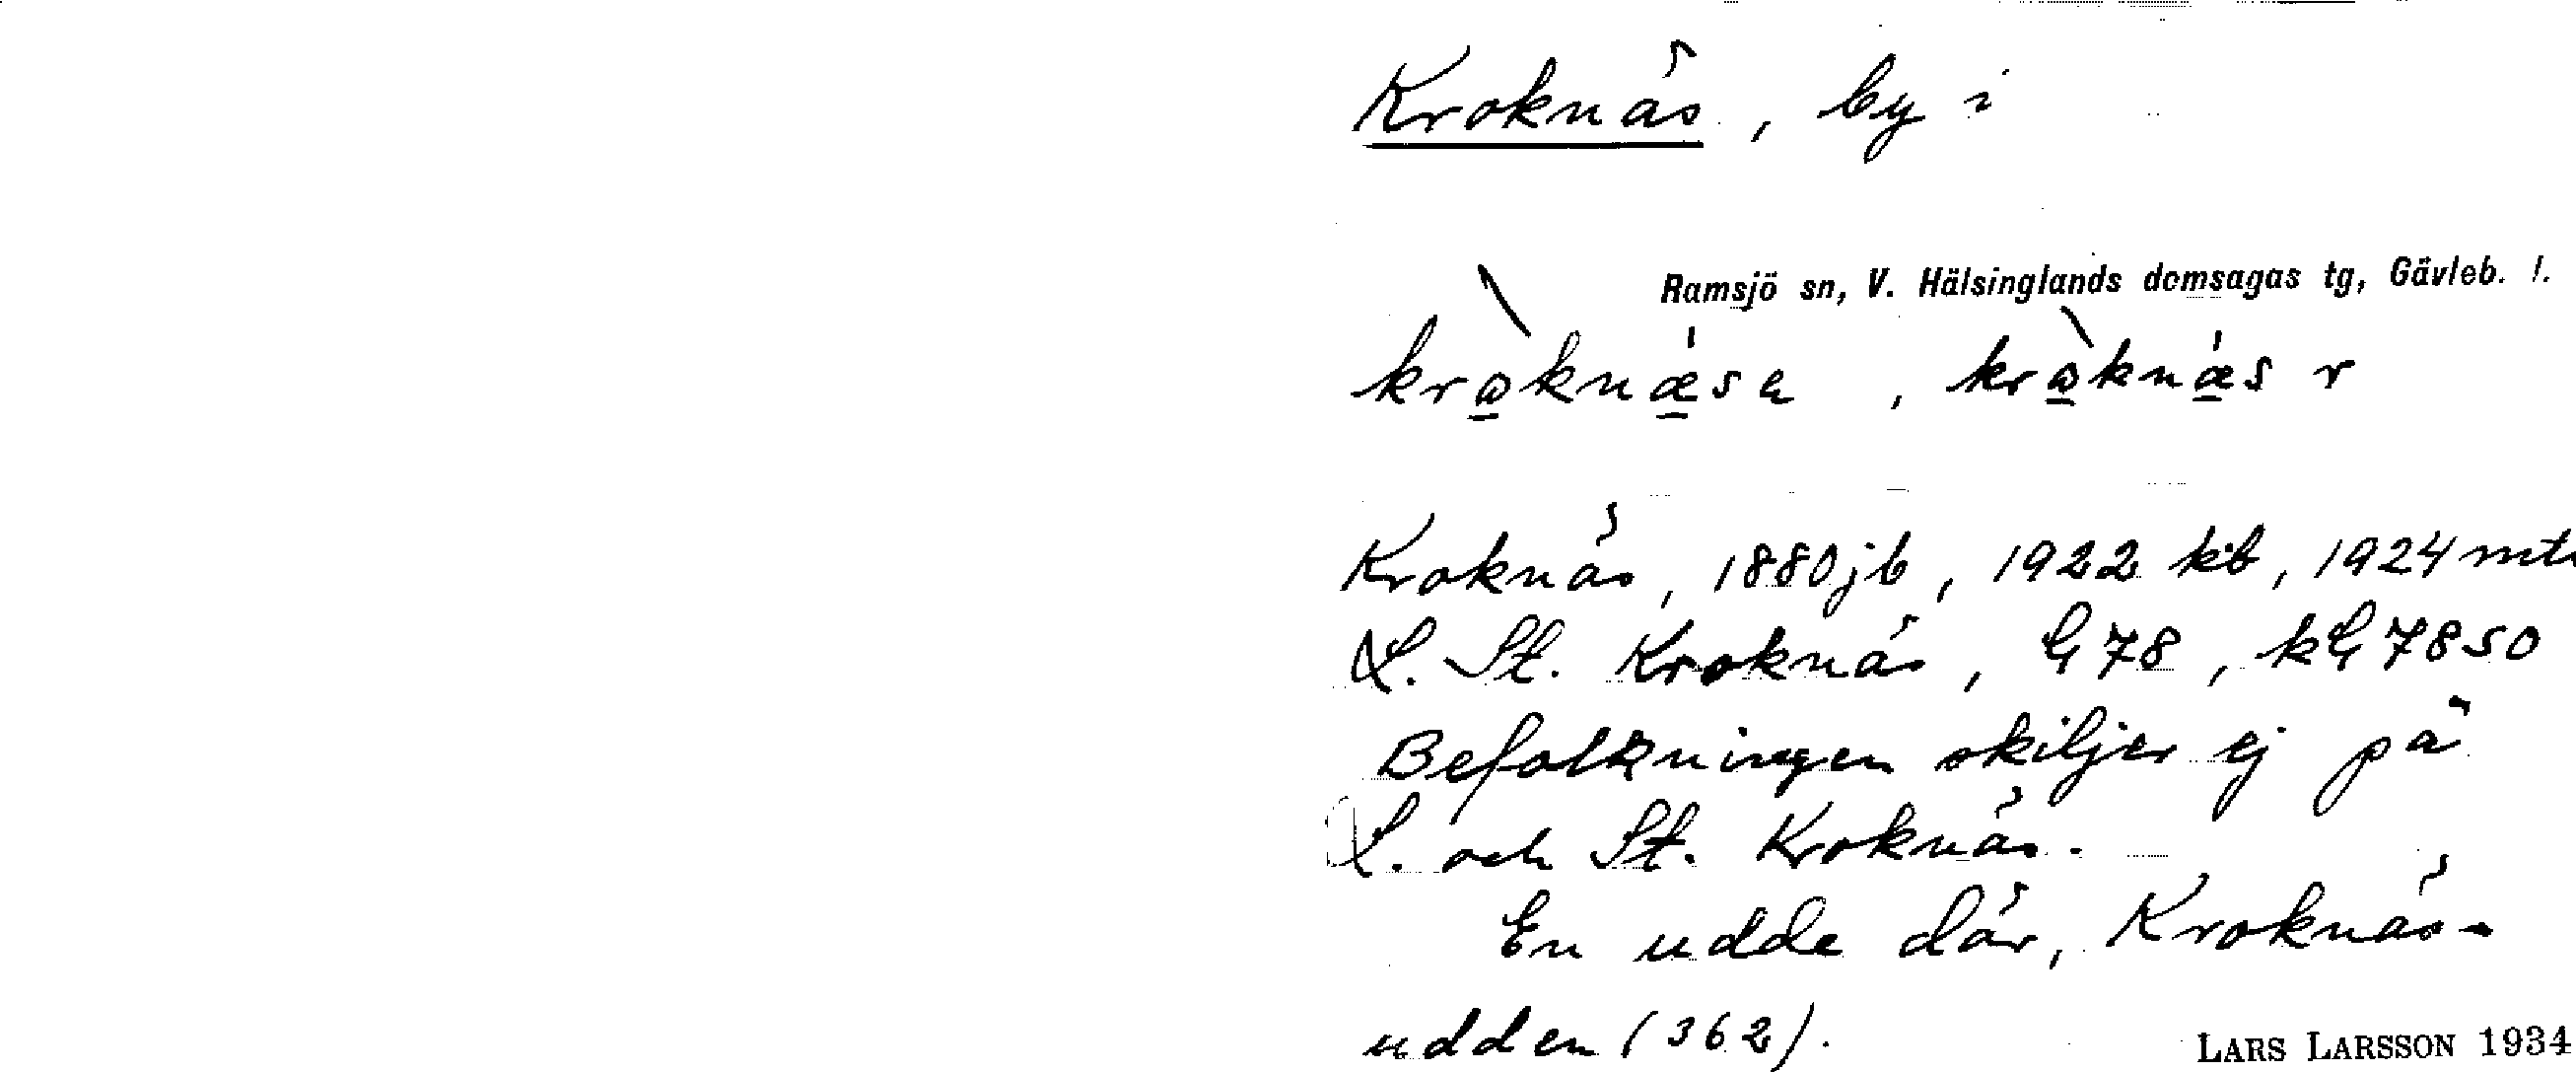 Kroknäs, by i
Ramsjö sn, V. Hälsinglands domsagas tg, Gävleb. l.
Kroknäs, 1880 jb, 1922 kb, 1924 mtl
L. St. Kroknäs, G 78, kG 7850
Befolkningen skiljer ej på
L. och St. Kroknäs.
En udde där, Kroknäs-
udden (362).
LARS LARSSON 1934